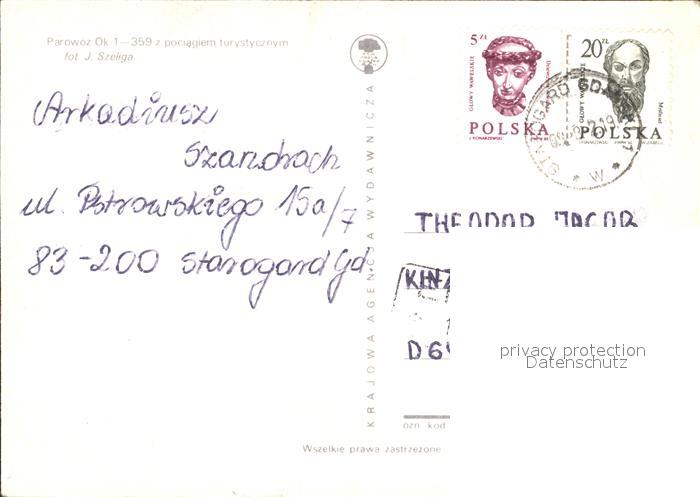 Parowóz Ok 1—359 z pociągiem turystycznym
fot. J. Szeliga
Arkadiusz
Szandrach
ul. Pstrowskiego 15a/7
83-200 Starogard Gd.
KRAJOWA AGENCJA WYDAWNICZA
5 ZŁ
GŁOWY WAWELSKIE
POLSKA
20 ZŁ
GŁOWY WAWELSKIE
POLSKA
STAROGARD GDAŃSKI 1
THEODOR JACOB
KINZ
D 64
privacy protection
Datenschutz
ozn. kod
Wszelkie prawa zastrzeżone